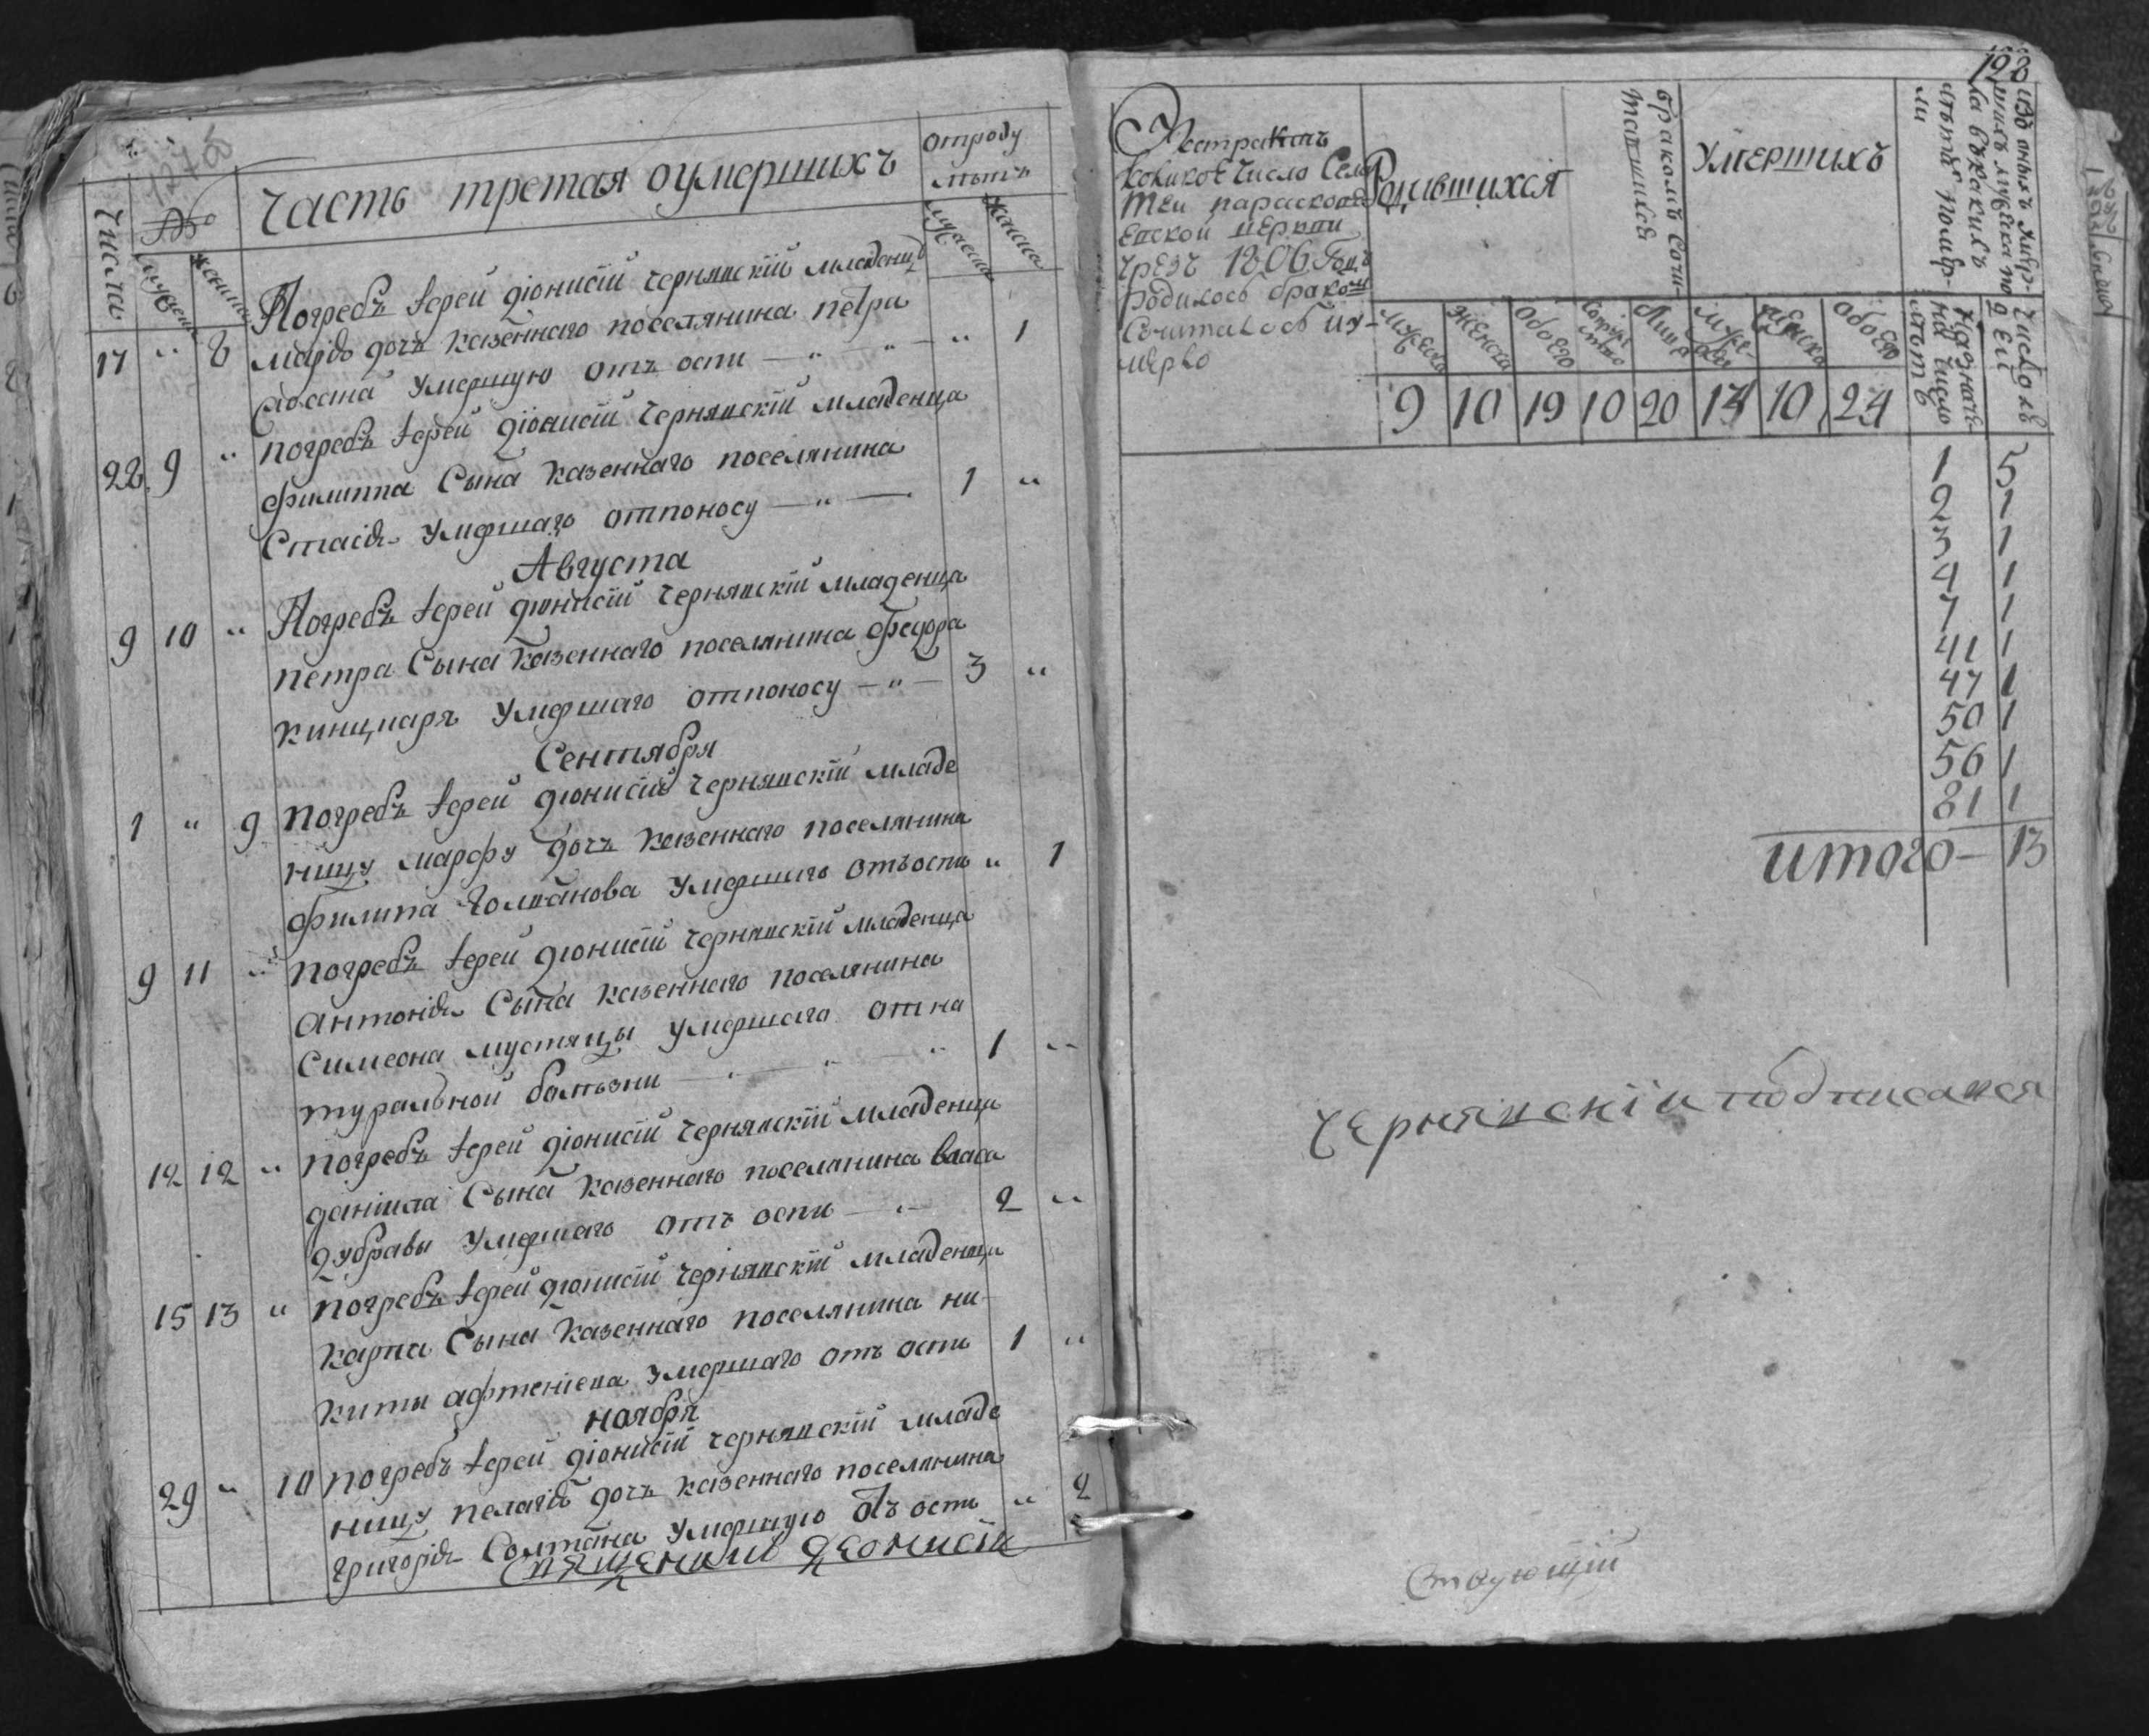 Часть третая оумершихъ
отроду
лѣтъ
Числа
мужеска
женска
Погребъ іерей діонисій чернявскій младенцъ
17 " 8 марію дочь казеннаго поселянина петра
умершую отъ оспи — " — " — " 1
22 9 " погребъ іерей діонисій чернявскій младенца
филиппа Сына казеннаго поселянина
Стасія умершаго отпоносу — " — 1 "
Августа
9 10 " Погребъ іерей діонисій чернявскій младенца
петра Сына казеннаго поселянина феодора
кинцнаря умершаго отпоносу — " — 3 "
Сентября
1 " 9 погребъ іерей діонисій чернявскій младе
ницу марфу дочь казеннаго поселянина
филипа умершаго отъоспи " 1
9 11 " погребъ іерей діонисій чернявскій младенца
антонія Сына казеннаго поселянина
Симеона мустяцы умершаго отна
туральной болѣзни — " — " 1 "
12 12 " погребъ іерей діонисій чернявскій младенца
даніила Сына казеннаго поселянина власа
дубравы умершаго отъ оспи — " — 2 "
15 13 " погребъ іерей діонисій чернявскій младенца
карпа Сына казеннаго поселянина ни-
киты афтеніева умершаго отъ оспи 1 "
ноября
29 " 10 погребъ іерей діонисій чернявскій младе
ницу пелагію дочь казеннаго поселянина
григорія Солтана умершую отъ оспи " 2
Священникъ Деонисій
128
коликое Число
церкви
чрезъ 1806 Годъ
родилось браком
Сочиталось иу-
мерло
Родившихся
бракомъ Сочи-
тавшихся
Умершихъ
мужеска
женска
обоего
Лица
муже-
ска
женска
обоего
9 10 19 10 20 14 10 24
1 5
2 1
3 1
4 1
7 1
41 1
47 1
50 1
56 1
81 1
итого — 13
чернявскій подписался